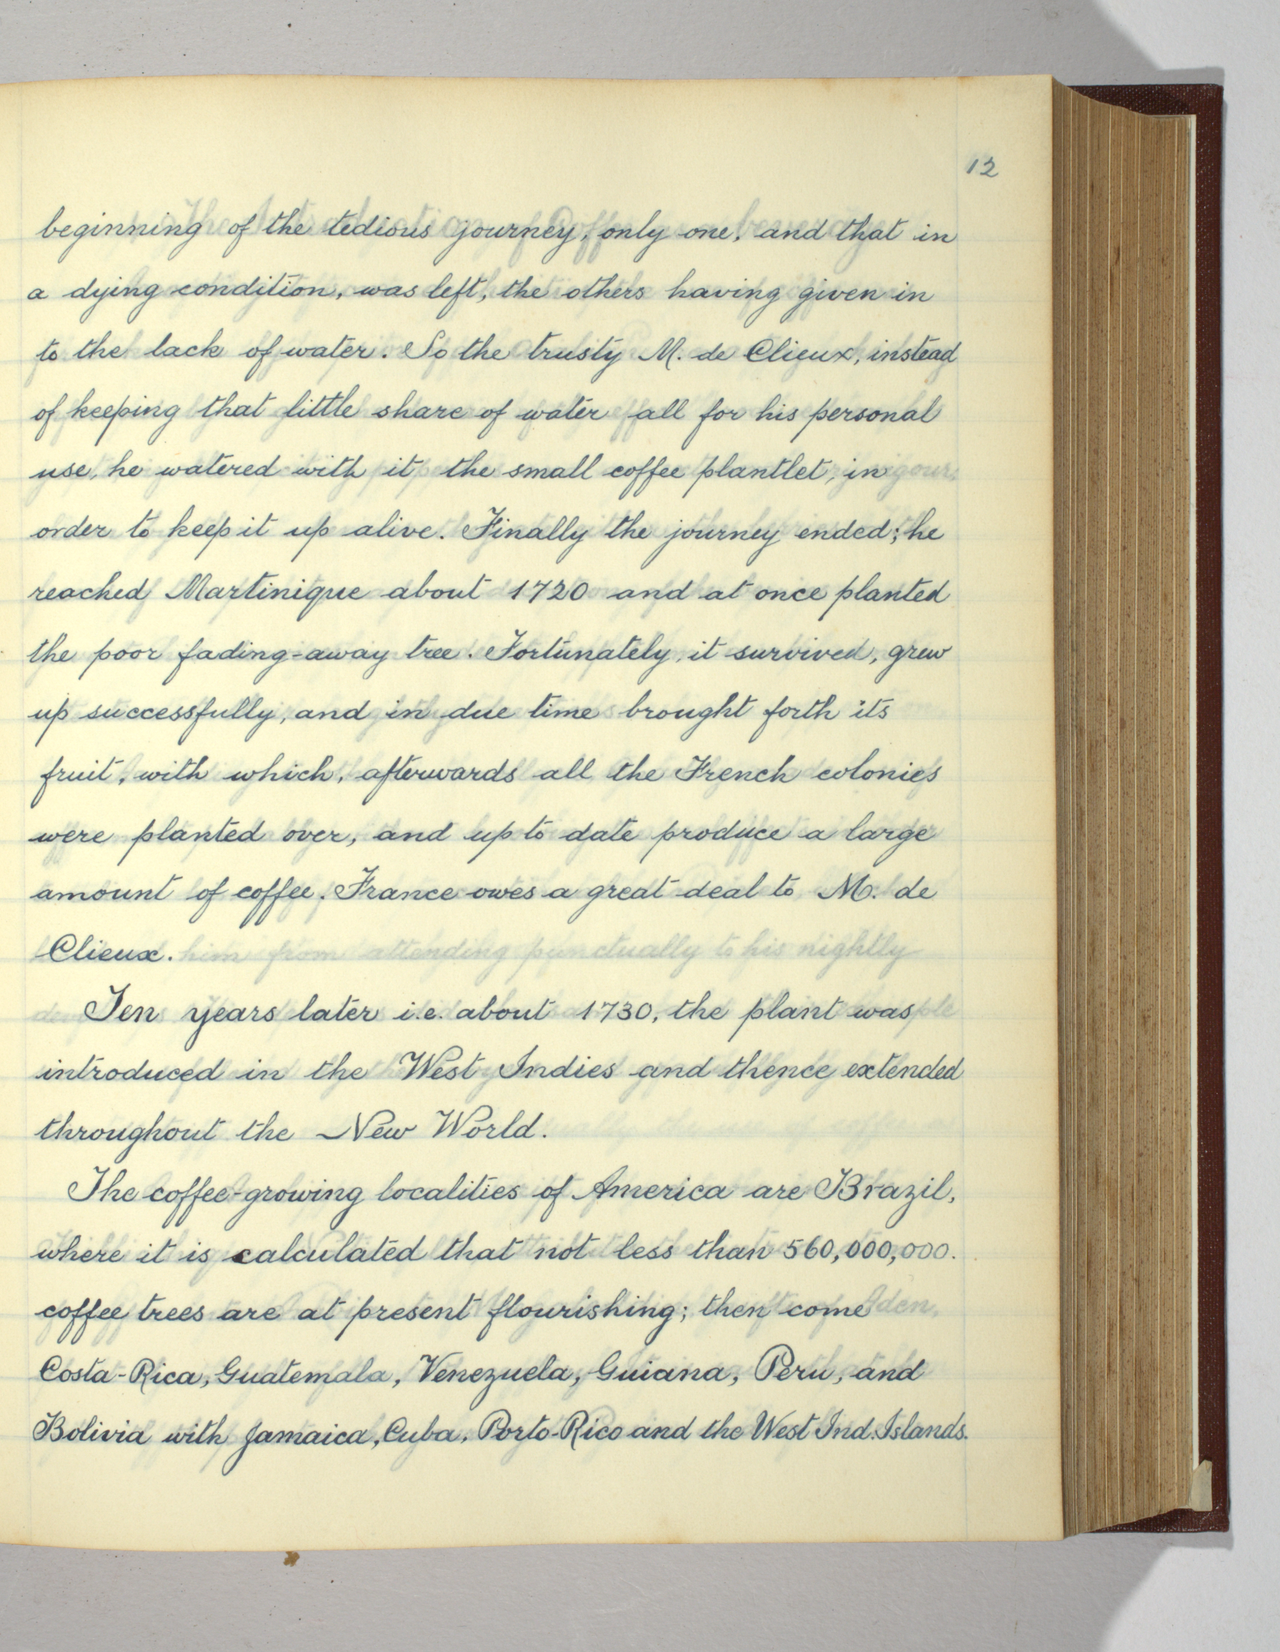 12
beginning of the tedious journey, only one, and that in
a dying condition, was left, the others having given in
to the lack of water. So the trusty M. de Clieux, instead
of keeping that little share of water all for his personal
use, he watered with it the small coffee plantlet, in
order to keep it up alive. Finally the journey ended; he
reached Martinique about 1720 and at once planted
the poor fading-away tree. Fortunately, it survived, grew
up successfully, and in due time brought forth its
fruit, with which, afterwards all the French colonies
were planted over, and up to date produce a large
amount of coffee. France owes a great deal to M. de
Clieux.
Ten years later i.e. about 1730, the plant was
introduced in the West Indies and thence extended
throughout the New World.
The coffee-growing localities of America are Brazil,
where it is calculated that not less than 560,000,000.
coffee trees are at present flourishing; then come
Costa-Rica, Guatemala, Venezuela, Guiana, Peru, and
Bolivia with Jamaica, Cuba, Porto-Rico and the West Ind. Islands.